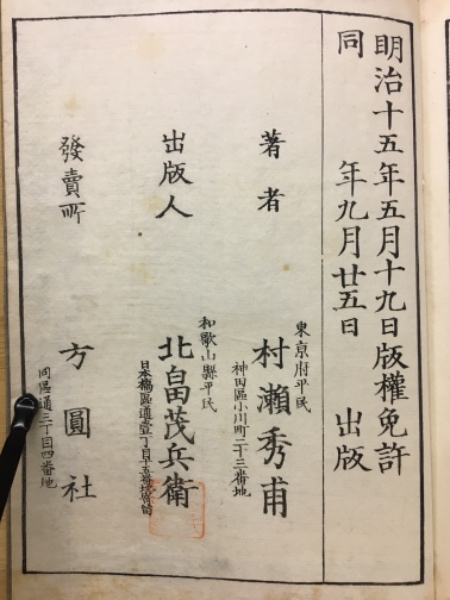 明治十五年五月十九日版權免許
同　年九月廿五日　出版
著者
東京府平民
村瀨秀甫
神田區小川町二十三番地
出版人
和歌山縣平民
北畠茂兵衛
日本橋區通壹丁目
發賣所
方圓社
同區通三丁目四番地